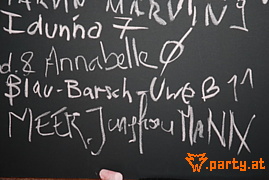 MARVIN 9
Idunna 7
d. 8 Annabelle Ø
Blau-Barsch-Uwe B 11
MEER Jungfrau MaNNX
party.at